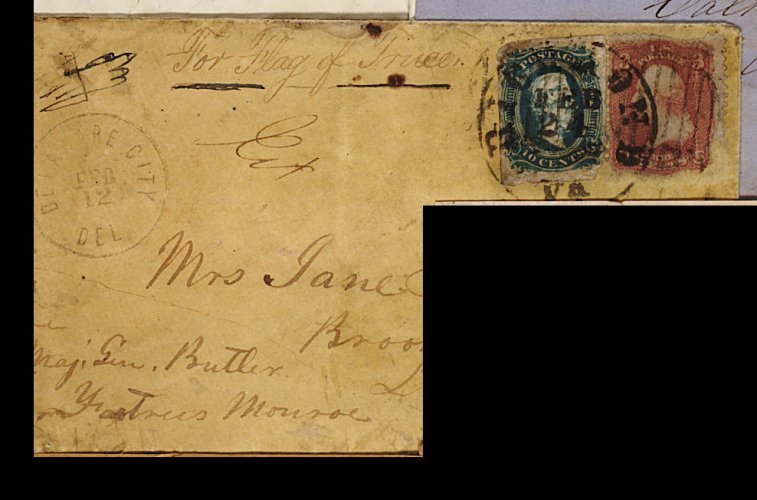 For Flag of Truce.
POSTAGE
TEN CENTS
FEB
2
VA
3 3
Ex
DELAWARE CITY
FEB
12
DEL
Mrs Jane
Broo
Maj. Gen. Butler.
Fortress Monroe